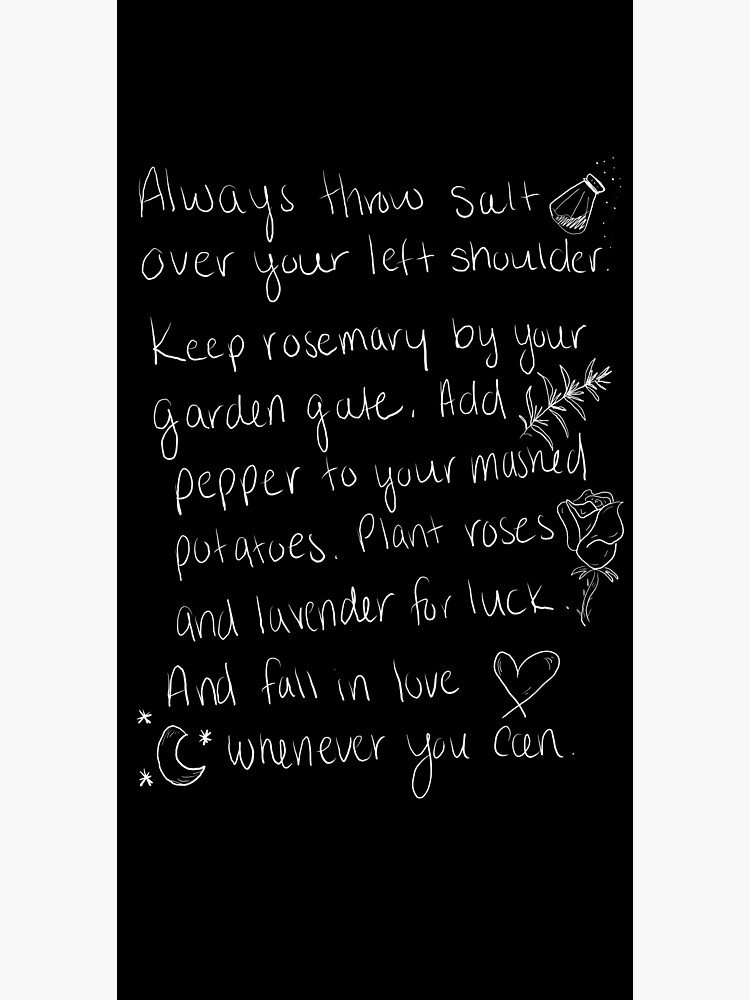 Always throw salt
over your left shoulder.
Keep rosemary by your
garden gate. Add
pepper to your mashed
potatoes. Plant roses
and lavender for luck.
And fall in love
whenever you can.